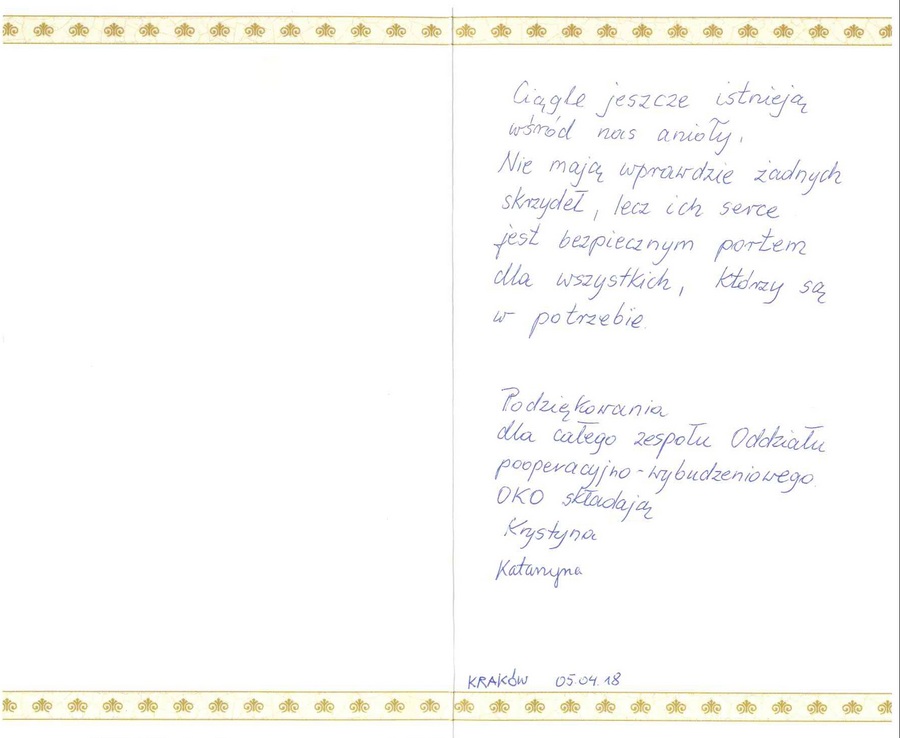 Ciągle jeszcze istnieją
wśród nas anioły.
Nie mają wprawdzie żadnych
skrzydeł, lecz ich serce
jest bezpiecznym portem
dla wszystkich, którzy są
w potrzebie.
Podziękowania
dla całego zespołu Oddziału
pooperacyjno-wybudzeniowego
OKO składają
Krystyna
Katarzyna
KRAKÓW 05.04.18